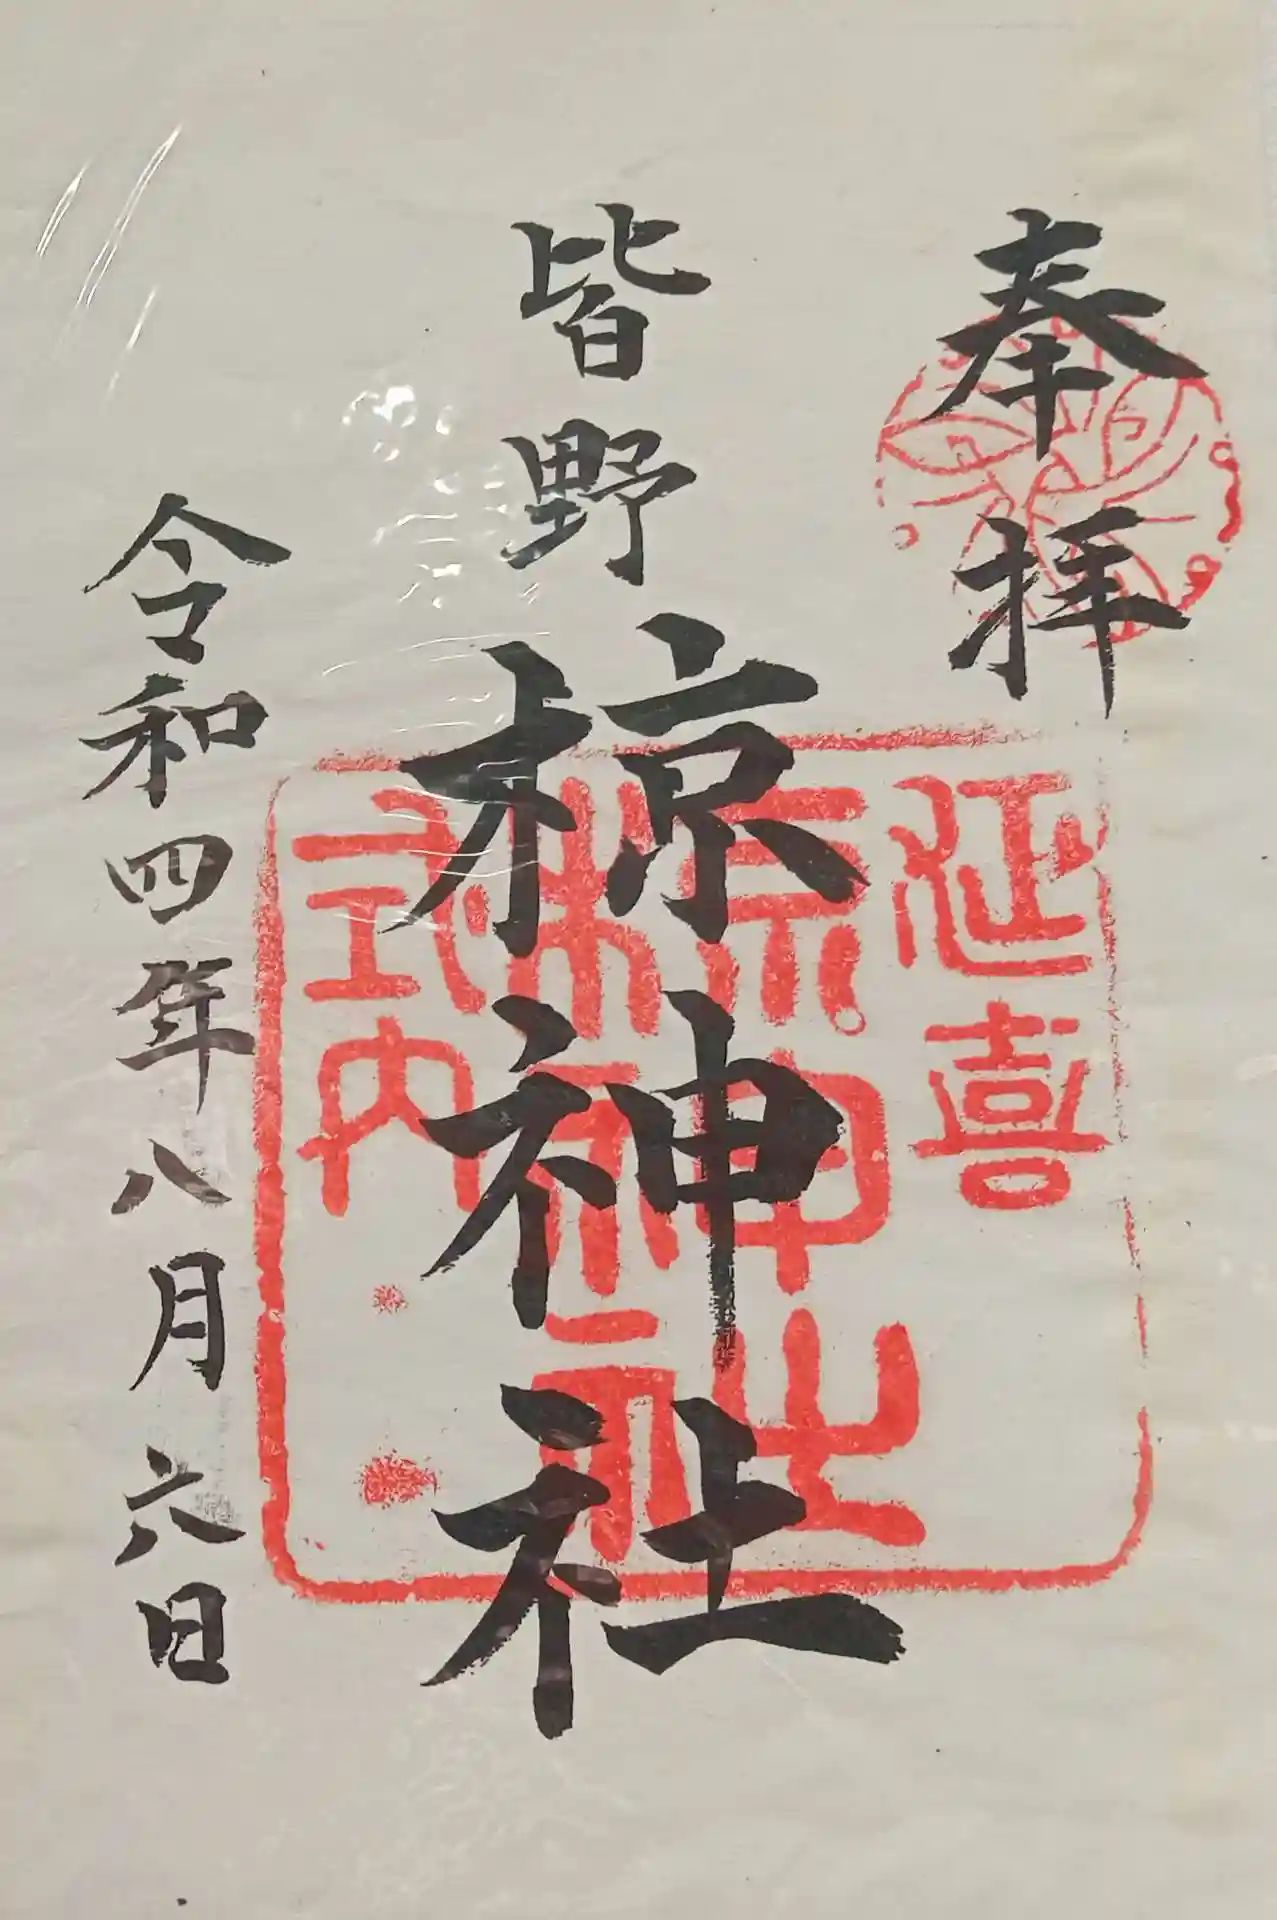 奉拝
皆野
椋神社
令和四年八月六日
延喜
椋神社
式内